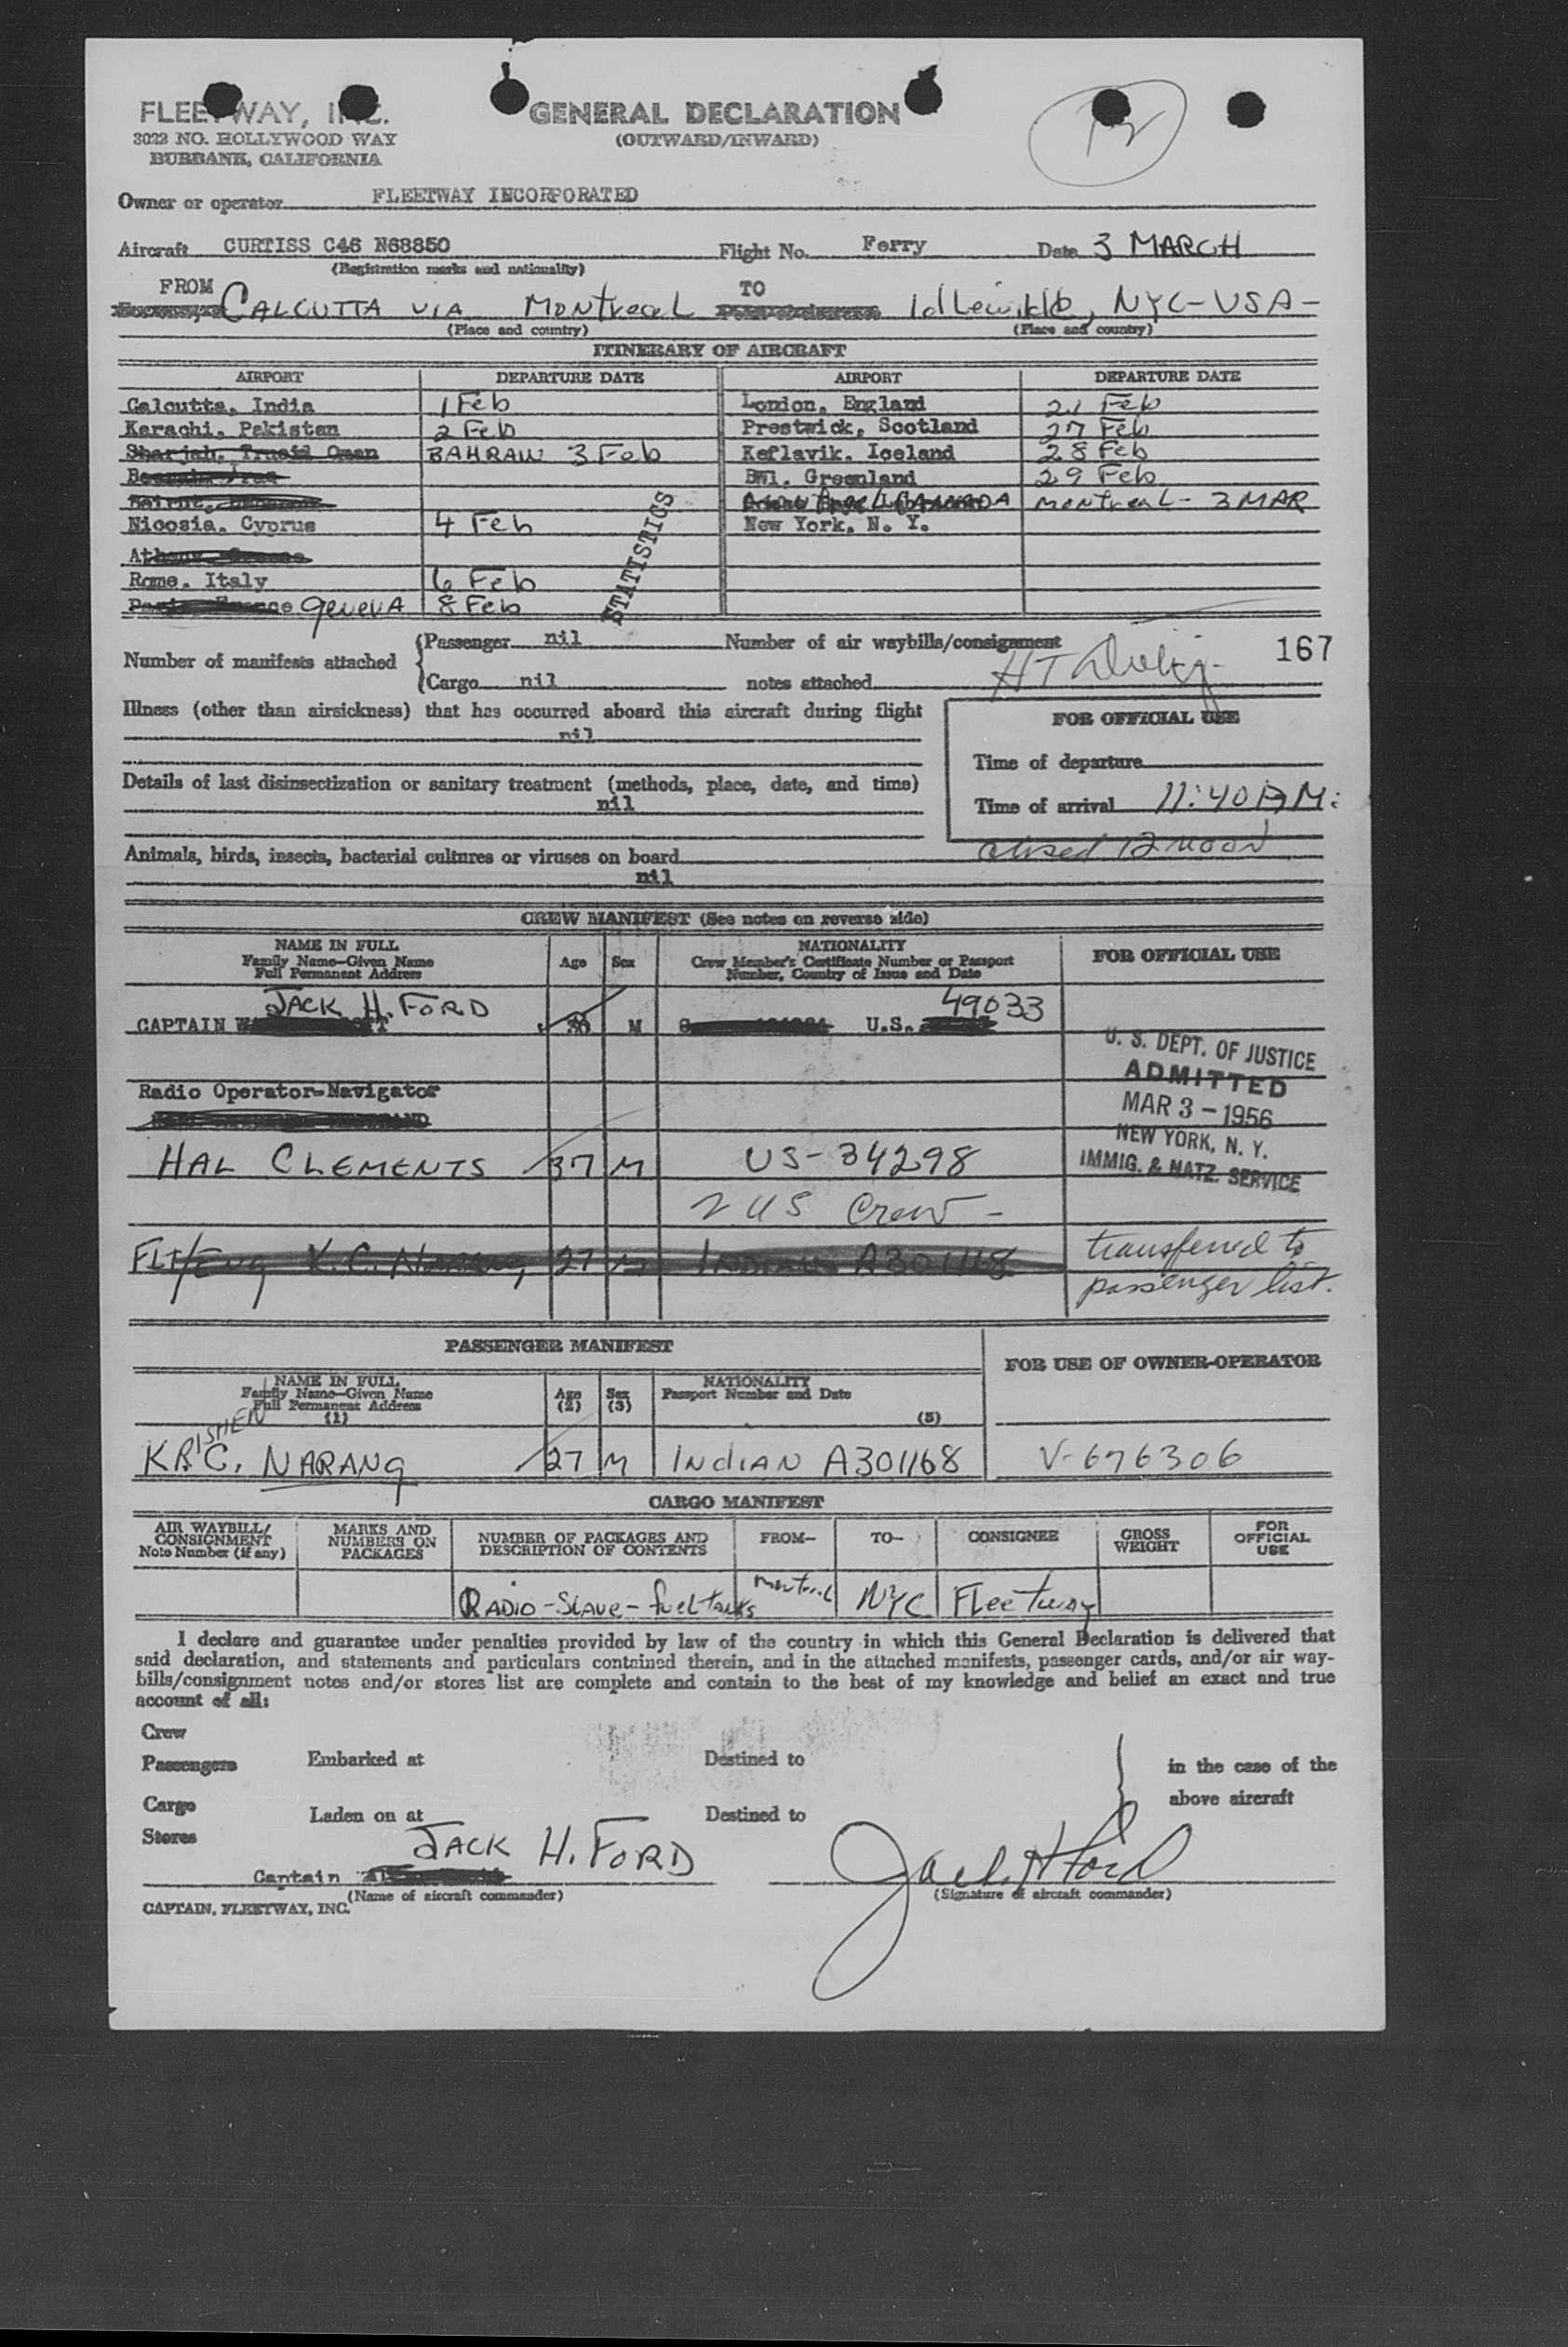 FLEETWAY, INC. GENERAL DECLARATION 12
3022 NO. HOLLYWOOD WAY (OUTWARD/INWARD)
BURBANK, CALIFORNIA
Owner or operator FLEETWAY INCORPORATED
Aircraft CURTISS C46 N68850 Flight No. Ferry Date 3 MARCH
(Registration marks and nationality)
FROM TO
CALCUTTA VIA Montreal Idlewilde, NYC-USA-
(Place and country) (Place and country)
ITINERARY OF AIRCRAFT
AIRPORT DEPARTURE DATE AIRPORT DEPARTURE DATE
Calcutta, India 1 Feb London, England 21 Feb
Karachi, Pakistan 2 Feb Prestwick, Scotland 27 Feb
Sharjah, Trucil Oman BAHRAIN 3 Feb Keflavik, Iceland 28 Feb
BW1, Greenland 29 Feb
Beirut, CANADA Montreal - 3 MAR
Nicosia, Cyprus 4 Feb New York, N. Y.
Athens, Greece
Rome, Italy 6 Feb
Paris, France GenevA 8 Feb
STATISTICS
Number of manifests attached
Passenger nil Number of air waybills/consignment 167
Cargo nil notes attached
Illness (other than airsickness) that has occurred aboard this aircraft during flight
nil
FOR OFFICIAL USE
Time of departure
Details of last disinsectization or sanitary treatment (methods, place, date, and time)
nil
Time of arrival 11:40 AM:
closed 12 noon
Animals, birds, insects, bacterial cultures or viruses on board
nil
CREW MANIFEST (See notes on reverse side)
NAME IN FULL NATIONALITY
Family Name—Given Name Age Sex Crew Member's Certificate Number or Passport FOR OFFICIAL USE
Full Permanent Address Number, Country of Issue and Date
JACK H. FORD 49033
CAPTAIN M U.S.
U. S. DEPT. OF JUSTICE
ADMITTED
MAR 3 - 1956
NEW YORK, N. Y.
IMMIG. & NATZ. SERVICE
Radio Operator-Navigator
HAL CLEMENTS 37 M US-34298
2 US Crew -
FLT/Eng K.C. NARANG, 27 M INDIAN A301168 transferred to
passenger list.
PASSENGER MANIFEST
FOR USE OF OWNER-OPERATOR
NAME IN FULL NATIONALITY
Family Name—Given Name Age Sex Passport Number and Date
Full Permanent Address (2) (3)
(1) (5)
KRISHEN
C. NARANG 27 M INDIAN A301168 V-676306
CARGO MANIFEST
AIR WAYBILL/ MARKS AND NUMBER OF PACKAGES AND FROM— TO— CONSIGNEE GROSS FOR
CONSIGNMENT NUMBERS ON DESCRIPTION OF CONTENTS WEIGHT OFFICIAL
Note Number (if any) PACKAGES USE
RADIO - Slave - fuel tanks Montreal NYC Fleetway
I declare and guarantee under penalties provided by law of the country in which this General Declaration is delivered that
said declaration, and statements and particulars contained therein, and in the attached manifests, passenger cards, and/or air way-
bills/consignment notes and/or stores list are complete and contain to the best of my knowledge and belief an exact and true
account of all:
Crew
Passengers Embarked at Destined to in the case of the
Cargo above aircraft
Laden on at Destined to
Stores
JACK H. FORD Jack H Ford
Captain
(Name of aircraft commander) (Signature of aircraft commander)
CAPTAIN, FLEETWAY, INC.